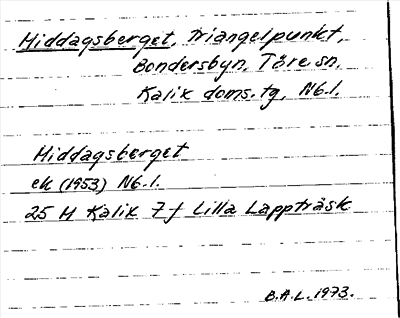 Middagsberget, Triangelpunkt,
Bondersbyn, Töre sn.
Kalix doms. tg, Nb.l.
Middagsberget
ek (1953) Nb.l.
25 M Kalix 7 f Lilla Lappträsk
B.A.L. 1973.